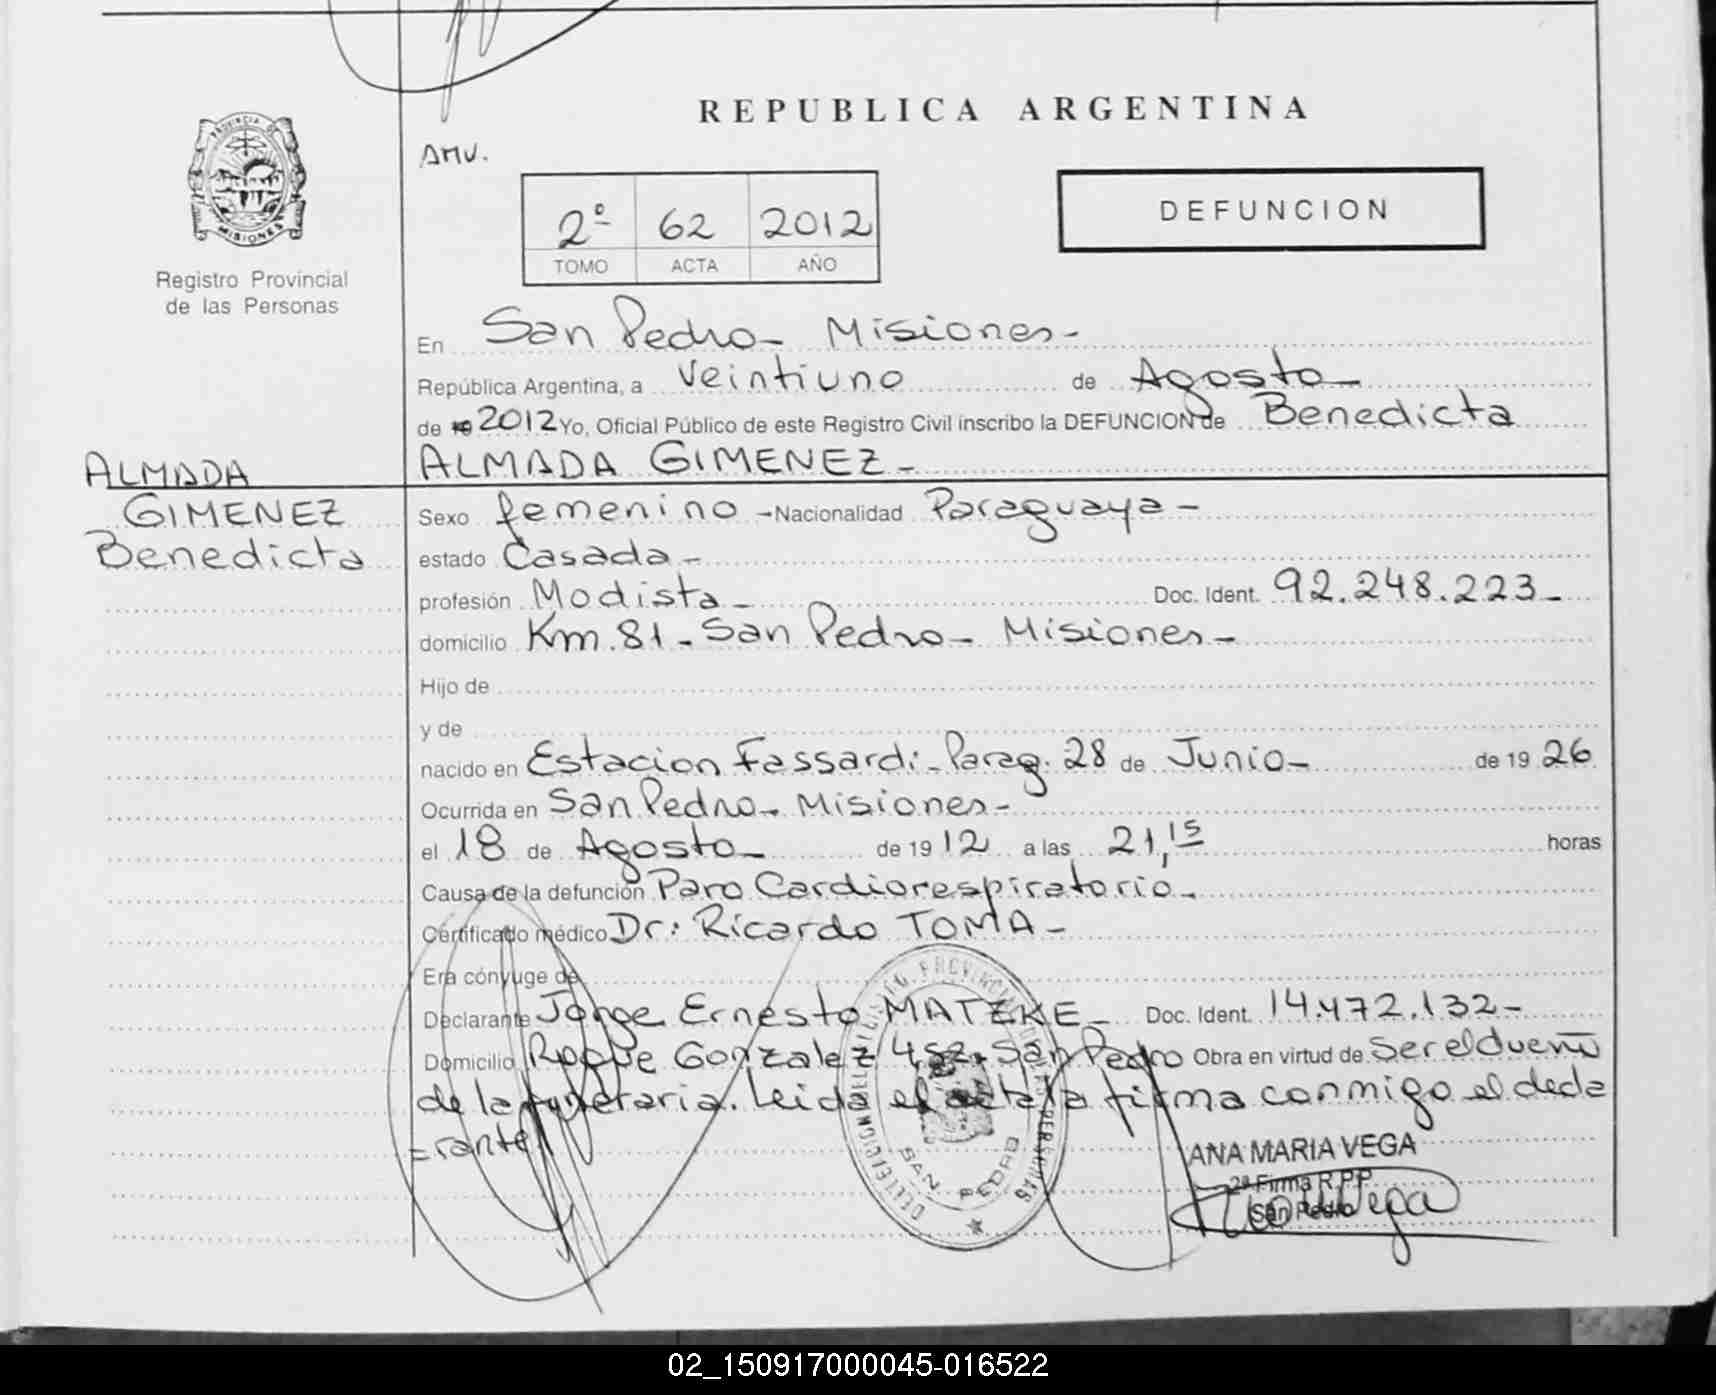 REPUBLICA ARGENTINA
AMV.
PROVINCIA DE
MISIONES
Registro Provincial
de las Personas
2º 62 2012
TOMO ACTA AÑO
DEFUNCION
En San Pedro - Misiones -
República Argentina, a Veintiuno de Agosto -
de 2012 Yo, Oficial Público de este Registro Civil inscribo la DEFUNCION de Benedicta
ALMADA GIMENEZ -
ALMADA
GIMENEZ
Benedicta
Sexo femenino - Nacionalidad Paraguaya -
estado Casada -
profesión Modista - Doc. Ident. 92.248.223 -
domicilio Km. 81 - San Pedro - Misiones -
Hijo de
y de
nacido en Estacion Fassardi - Parag. 28 de Junio - de 19 26
Ocurrida en San Pedro - Misiones -
el 18 de Agosto - de 19 12 a las 21,15 horas
Causa de la defunción Paro Cardiorespiratorio -
Certificado médico Dr: Ricardo TOMA -
Era cónyuge de
Declarante Jorge Ernesto MATZKE - Doc. Ident. 14.472.132 -
Domicilio Roque Gonzalez 452 - San Pedro Obra en virtud de Ser el dueño
de la funeraria. Leida el acta la firma conmigo el decla
=rante
SAN PEDRO
ANA MARIA VEGA
2ª Firma R.P.P.
San Pedro
02_150917000045-016522